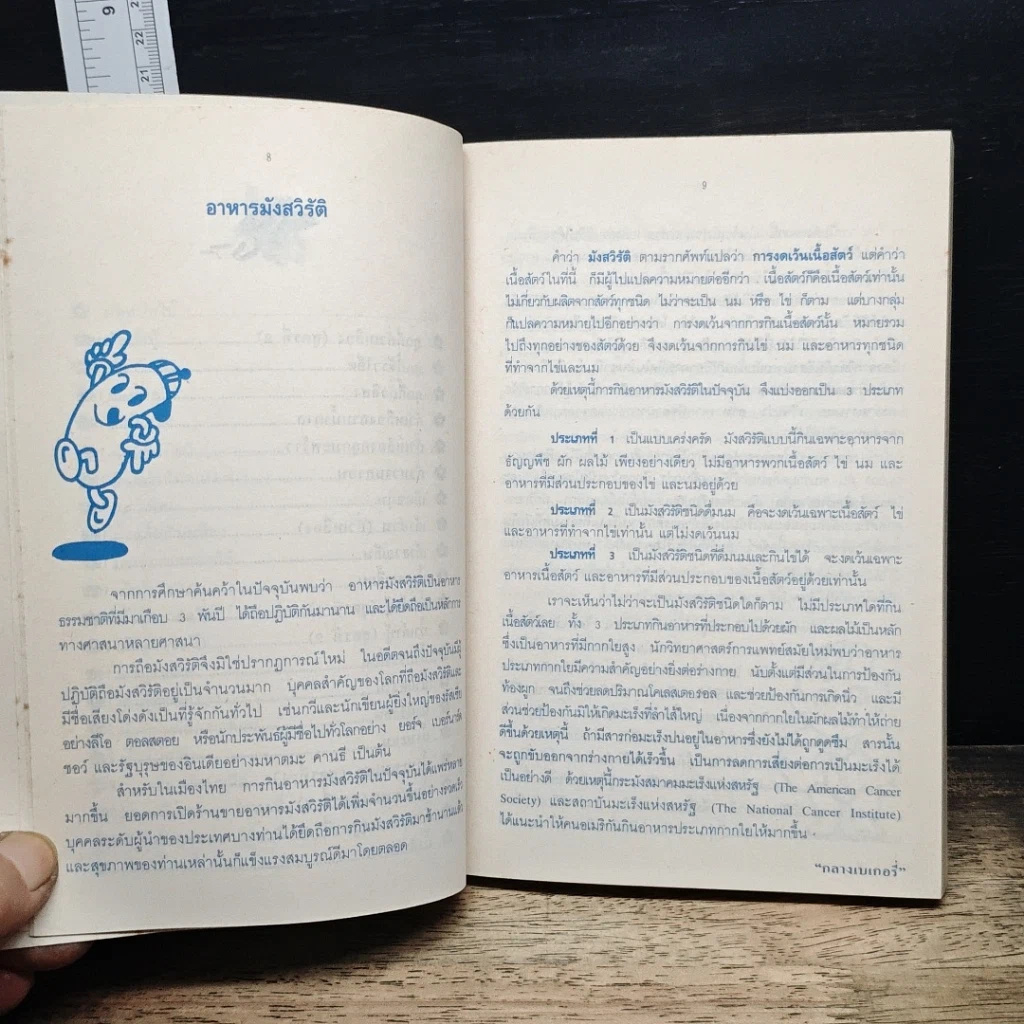 9
22
21
8
อาหารมังสวิรัติ
จากการศึกษาค้นคว้าในปัจจุบันพบว่า อาหารมังสวิรัติเป็นอาหาร
ธรรมชาติที่มีมาเกือบ 3 พันปี ได้ถือปฏิบัติกันมานาน และได้ยึดถือเป็นหลักการ
ทางศาสนาหลายศาสนา
การถือมังสวิรัติจึงมิใช่ปรากฏการณ์ใหม่ ในอดีตจนถึงปัจจุบันมีผู้
ปฏิบัติถือมังสวิรัติอยู่เป็นจำนวนมาก บุคคลสำคัญของโลกที่ถือมังสวิรัติและ
มีชื่อเสียงโด่งดังเป็นที่รู้จักกันทั่วไป เช่นกวีและนักเขียนผู้ยิ่งใหญ่ของรัสเซีย
อย่างลีโอ ตอลสตอย หรือนักประพันธ์ผู้มีชื่อไปทั่วโลกอย่าง ยอร์จ เบอร์นาร์ด
ชอว์ และรัฐบุรุษของอินเดียอย่างมหาตมะ คานธี เป็นต้น
สำหรับในเมืองไทย การกินอาหารมังสวิรัติในปัจจุบันได้แพร่หลาย
มากขึ้น ยอดการเปิดร้านขายอาหารมังสวิรัติได้เพิ่มจำนวนขึ้นอย่างรวดเร็ว
บุคคลระดับผู้นำของประเทศบางท่านได้ยึดถือการกินมังสวิรัติมาช้านานแล้ว
และสุขภาพของท่านเหล่านั้นก็แข็งแรงสมบูรณ์ดีมาโดยตลอด
9
คำว่า มังสวิรัติ ตามรากศัพท์แปลว่า การงดเว้นเนื้อสัตว์ แต่คำว่า
เนื้อสัตว์ในที่นี้ ก็มีผู้ไปแปลความหมายต่ออีกว่า เนื้อสัตว์ก็คือเนื้อสัตว์เท่านั้น
ไม่เกี่ยวกับผลิตจากสัตว์ทุกชนิด ไม่ว่าจะเป็น นม หรือ ไข่ ก็ตาม แต่บางกลุ่ม
ก็แปลความหมายไปอีกอย่างว่า การงดเว้นจากการกินเนื้อสัตว์นั้น หมายรวม
ไปถึงทุกอย่างของสัตว์ด้วย จึงงดเว้นจากการกินไข่ นม และอาหารทุกชนิด
ที่ทำจากไข่และนม
ด้วยเหตุนี้การกินอาหารมังสวิรัติในปัจจุบัน จึงแบ่งออกเป็น 3 ประเภท
ด้วยกัน
ประเภทที่ 1 เป็นแบบเคร่งครัด มังสวิรัติแบบนี้กินเฉพาะอาหารจาก
ธัญญพืช ผัก ผลไม้ เพียงอย่างเดียว ไม่มีอาหารพวกเนื้อสัตว์ ไข่ นม และ
อาหารที่มีส่วนประกอบของไข่ และนมอยู่ด้วย
ประเภทที่ 2 เป็นมังสวิรัติชนิดดื่มนม คือจะงดเว้นเฉพาะเนื้อสัตว์ ไข่
และอาหารที่ทำจากไข่เท่านั้น แต่ไม่งดเว้นนม
ประเภทที่ 3 เป็นมังสวิรัติชนิดที่ดื่มนมและกินไข่ได้ จะงดเว้นเฉพาะ
อาหารเนื้อสัตว์ และอาหารที่มีส่วนประกอบของเนื้อสัตว์อยู่ด้วยเท่านั้น
เราจะเห็นว่าไม่ว่าจะเป็นมังสวิรัติชนิดใดก็ตาม ไม่มีประเภทใดที่กิน
เนื้อสัตว์เลย ทั้ง 3 ประเภทกินอาหารที่ประกอบไปด้วยผัก และผลไม้เป็นหลัก
ซึ่งเป็นอาหารที่มีกากใยสูง นักวิทยาศาสตร์การแพทย์สมัยใหม่พบว่าอาหาร
ประเภทกากใยมีความสำคัญอย่างยิ่งต่อร่างกาย นับตั้งแต่มีส่วนในการป้องกัน
ท้องผูก จนถึงช่วยลดปริมาณโคเลสเตอรอล และช่วยป้องกันการเกิดนิ่ว และมี
ส่วนช่วยป้องกันมิให้เกิดมะเร็งที่ลำไส้ใหญ่ เนื่องจากกากใยในผักผลไม้ทำให้ถ่าย
ดีขึ้นด้วยเหตุนี้ ถ้ามีสารก่อมะเร็งปนอยู่ในอาหารซึ่งยังไม่ได้ถูกดูดซึม สารนั้น
จะถูกขับออกจากร่างกายได้เร็วขึ้น เป็นการลดการเสี่ยงต่อการเป็นมะเร็งได้
เป็นอย่างดี ด้วยเหตุนี้กระมังสมาคมมะเร็งแห่งสหรัฐ (The American Cancer
Society) และสถาบันมะเร็งแห่งสหรัฐ (The National Cancer Institute)
ได้แนะนำให้คนอเมริกันกินอาหารประเภทกากใยให้มากขึ้น
“กลางเบเกอรี่”